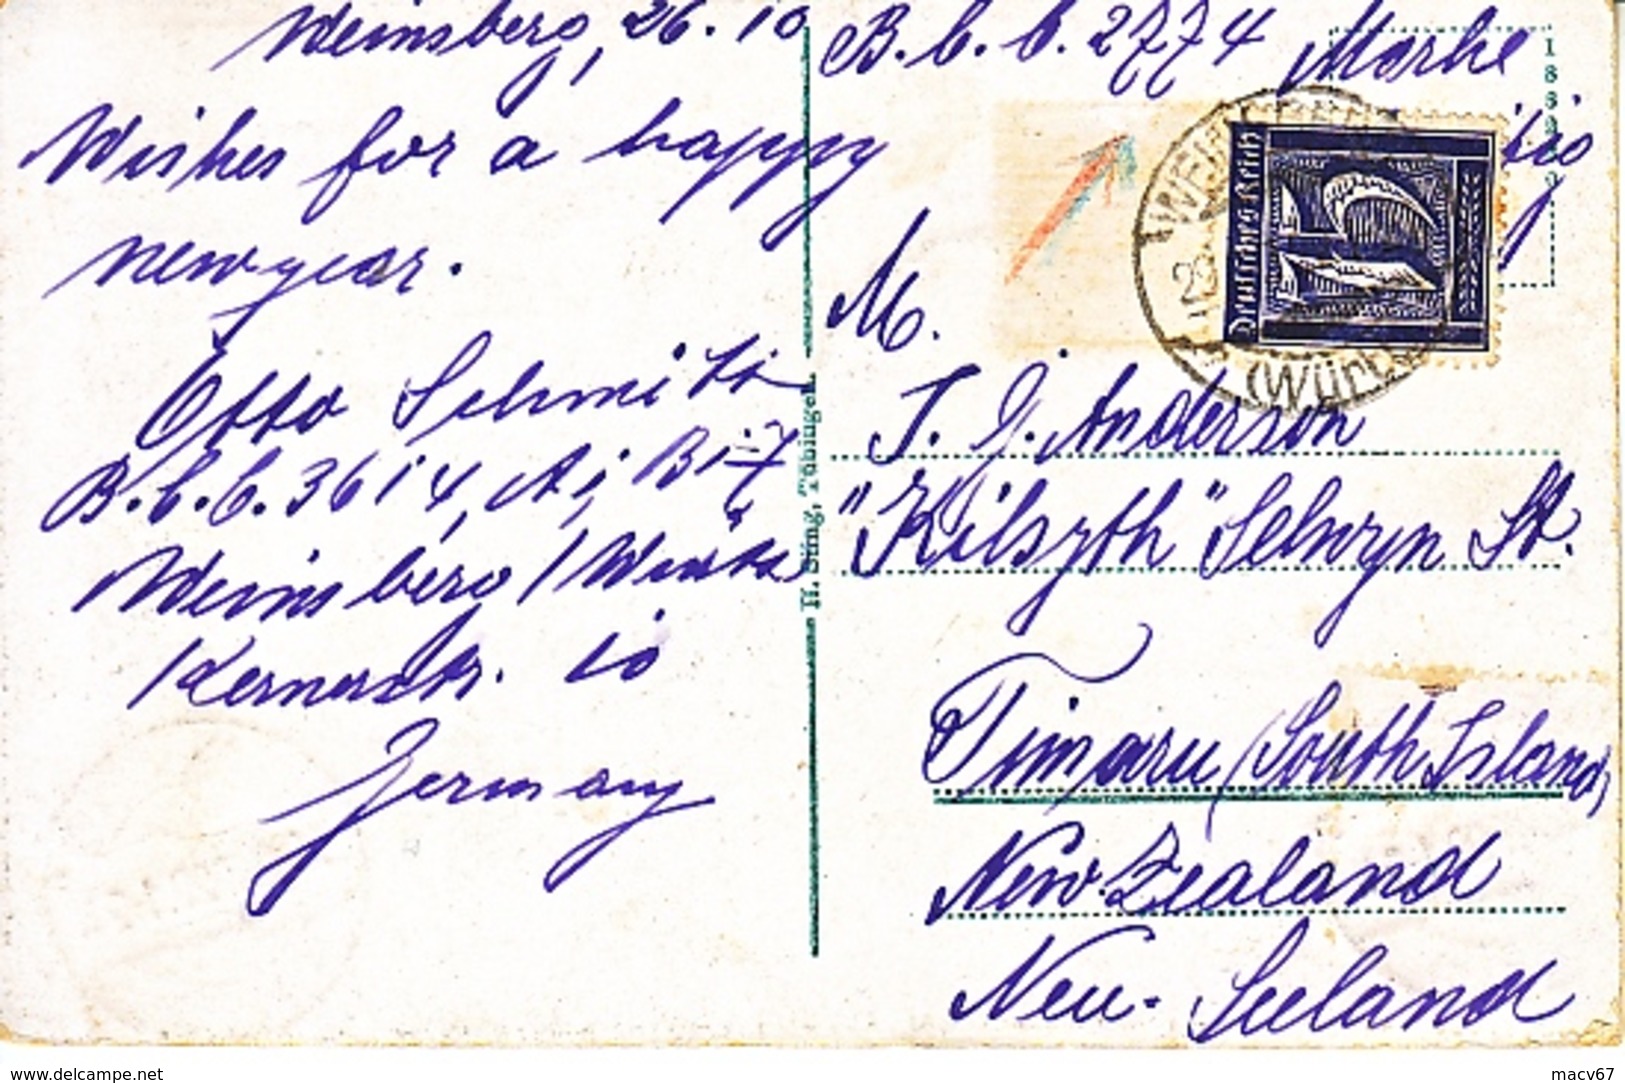 Weinsberg, 26. 10
Wishes for a happy
newyear.
Otto Schmitt
B.C.C. 3614, A; Bi-7
Weinsberg / Württ
Kernerstr. 10
Germany
H. Sting, Tübingen
B.C.C. 2774 Marke
M.
WEINSBERG
(Württ
Deutsches Reich
T. G. Anderson
"Kilsyth" Selwyn St.
Timaru (South Island)
New-Zealand
Neu-Seeland
www.delcampe.net
macv67